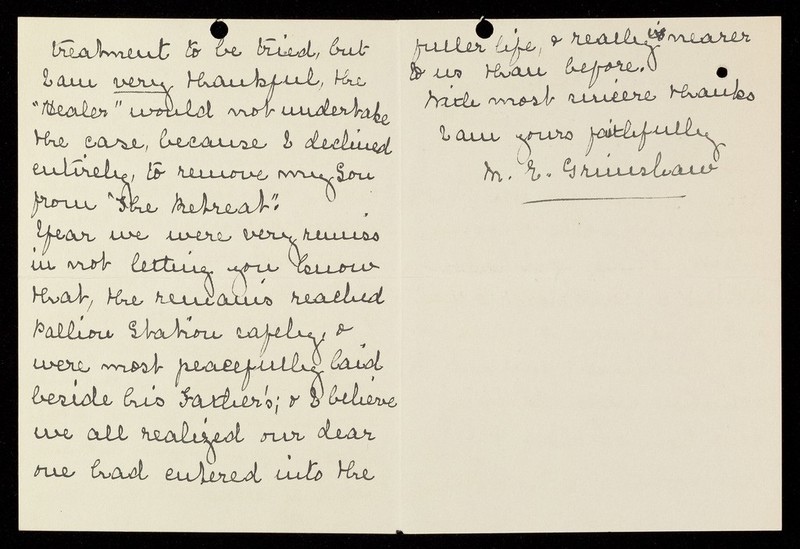 treatment to be tried, but
I am very thankful, the
"Healer" would not undertake
the case, because I declined
entirely, to remove my Son
from "The Retreat".
I fear we were very remiss
in not letting you know
that, the remains reached
Pallion Station safely, &
were most peacefully laid
beside his Father's; & I believe
we all realized our dear
one had entered into the
fuller life, & really is nearer
to us than before.
With most sincere thanks
I am yours faithfully
M. E. Grimshaw